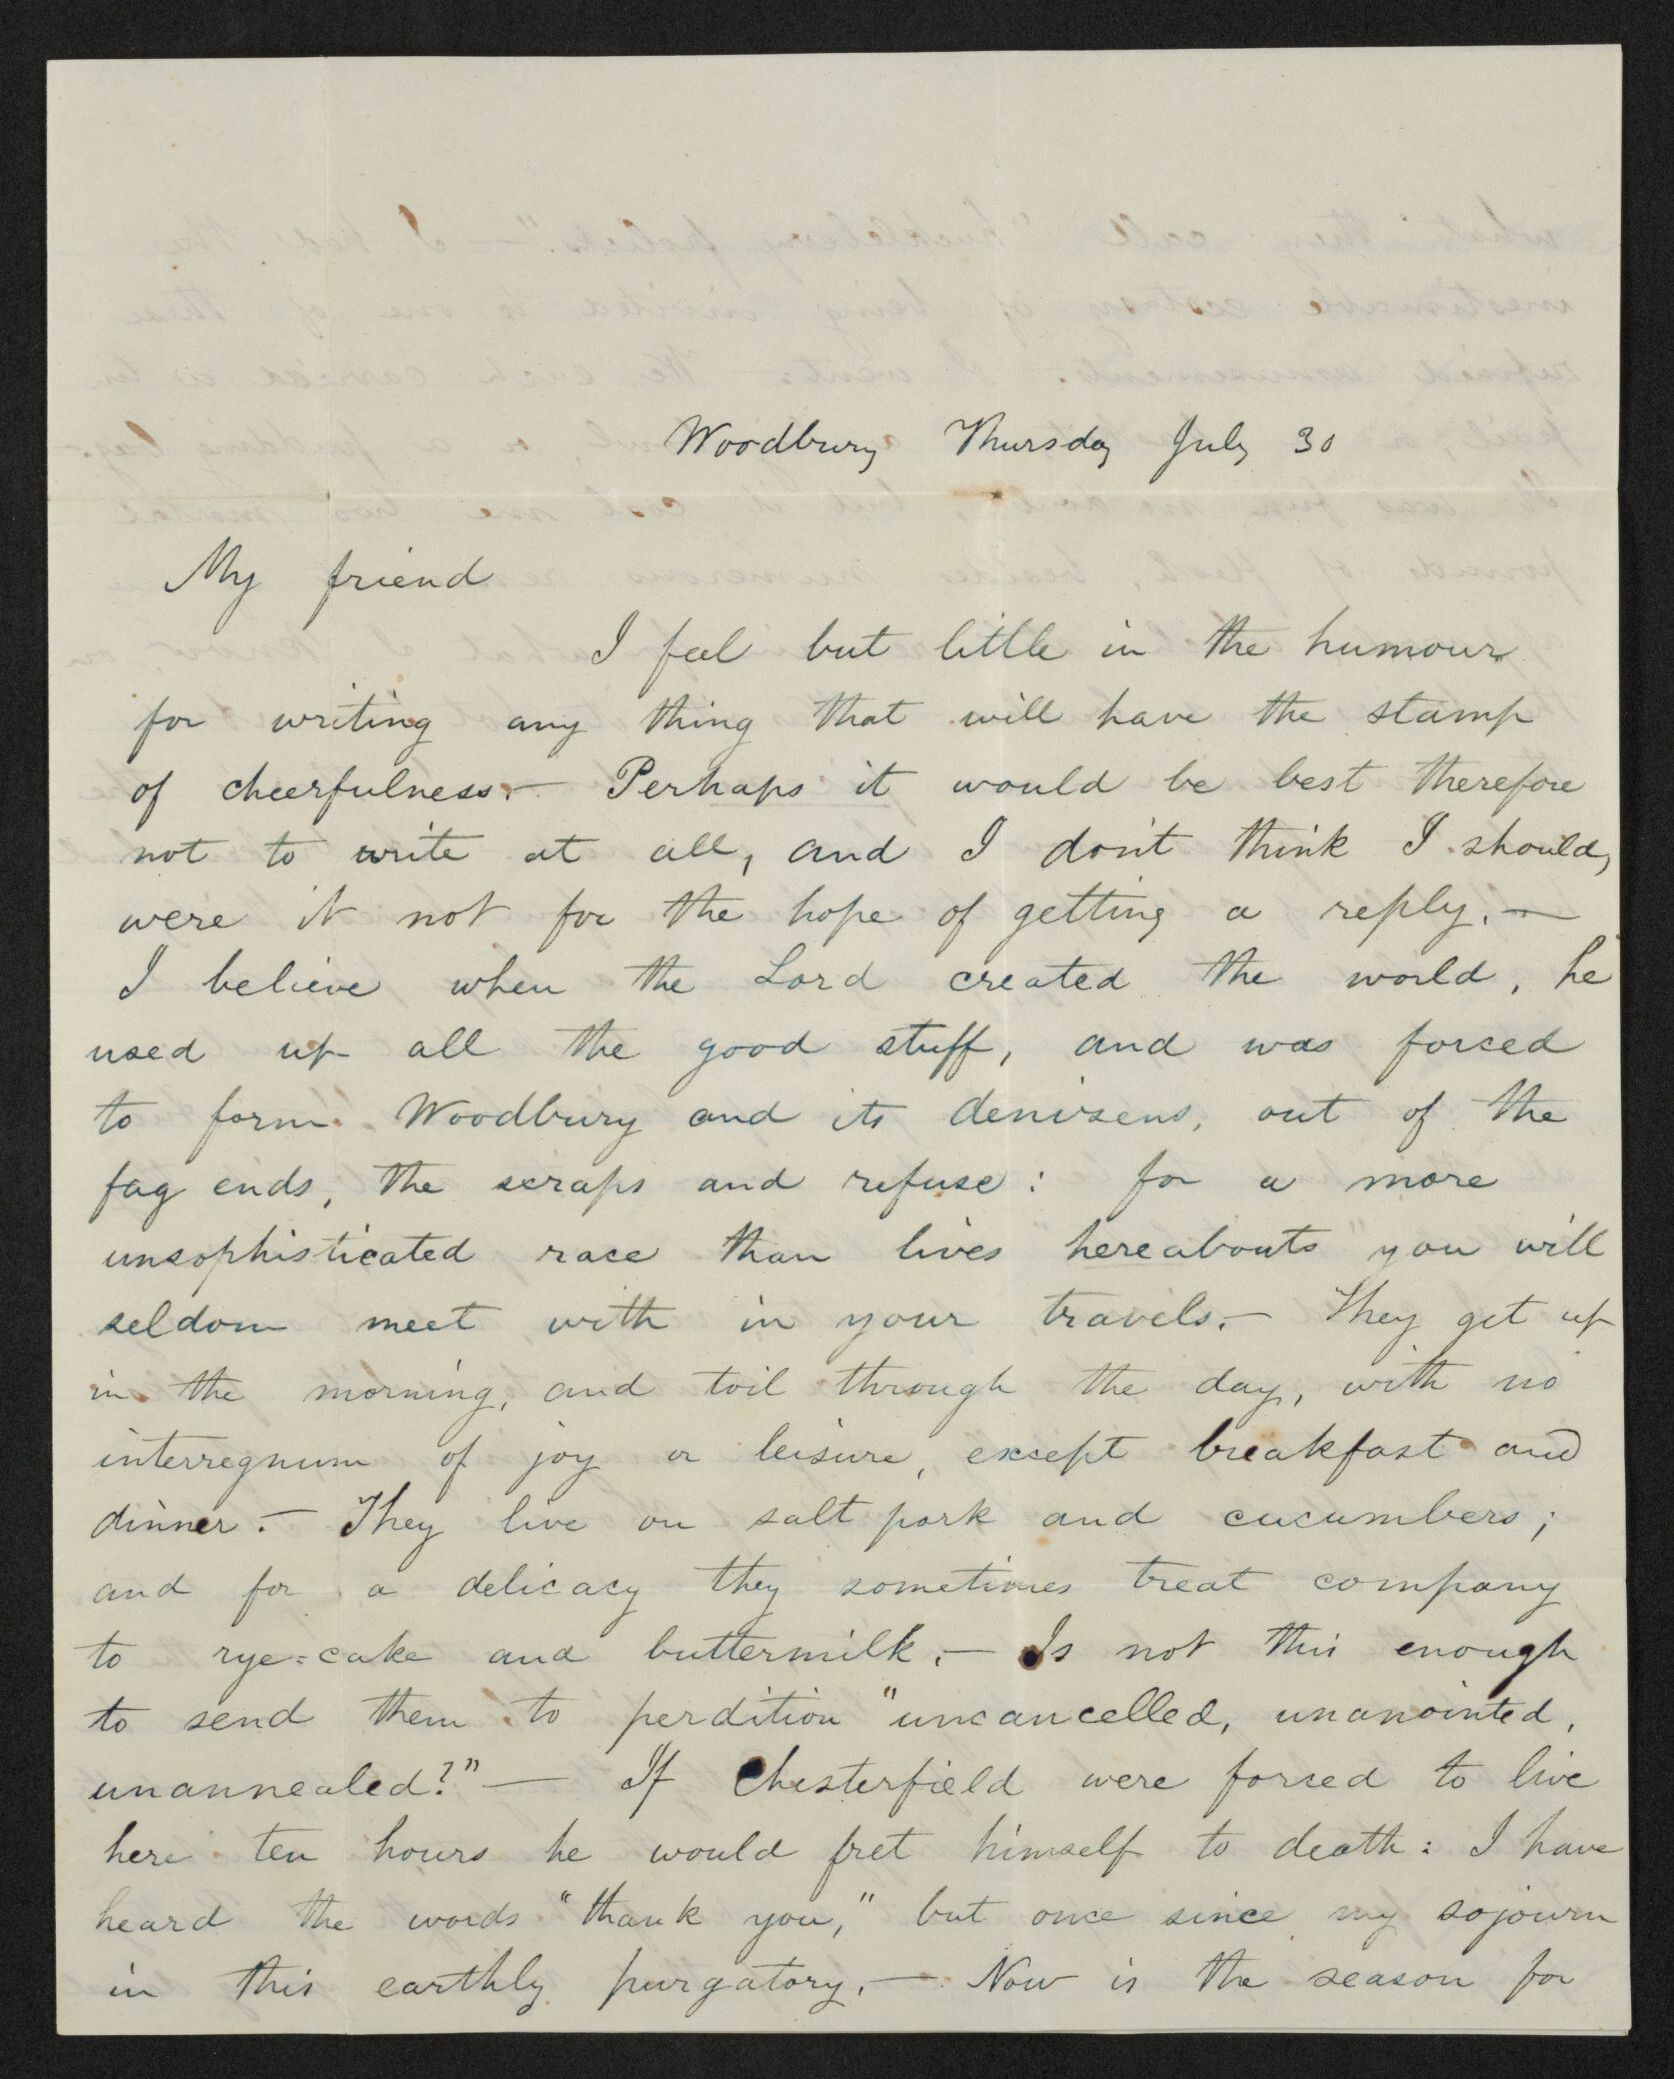 Woodbury Thursday July 30
My friend
I feel but little in the humour
for writing any thing that will have the stamp
of cheerfulness.— Perhaps it would be best therefore
not to write at all, and I don't think I should,
were it not for the hope of getting a reply.—
I believe when the Lord created the world, he
used up all the good stuff, and was forced
to form Woodbury and its denizens, out of the
fag ends, the scraps and refuse: for a more
unsophisticated race than lives hereabouts you will
seldom meet with in your travels.— They get up
in the morning, and toil through the day, with no
interregnum of joy or leisure, except breakfast and
dinner.— They live on salt pork and cucumbers;
and for a delicacy they sometimes treat company
to rye=cake and buttermilk.— Is not this enough
to send them to perdition "uncancelled, unanointed,
unannealed?"— If Chesterfield were forced to live
here ten hours he would fret himself to death: I have
heard the words "thank you," but once since my sojourn
in this earthly purgatory.— Now is the season for